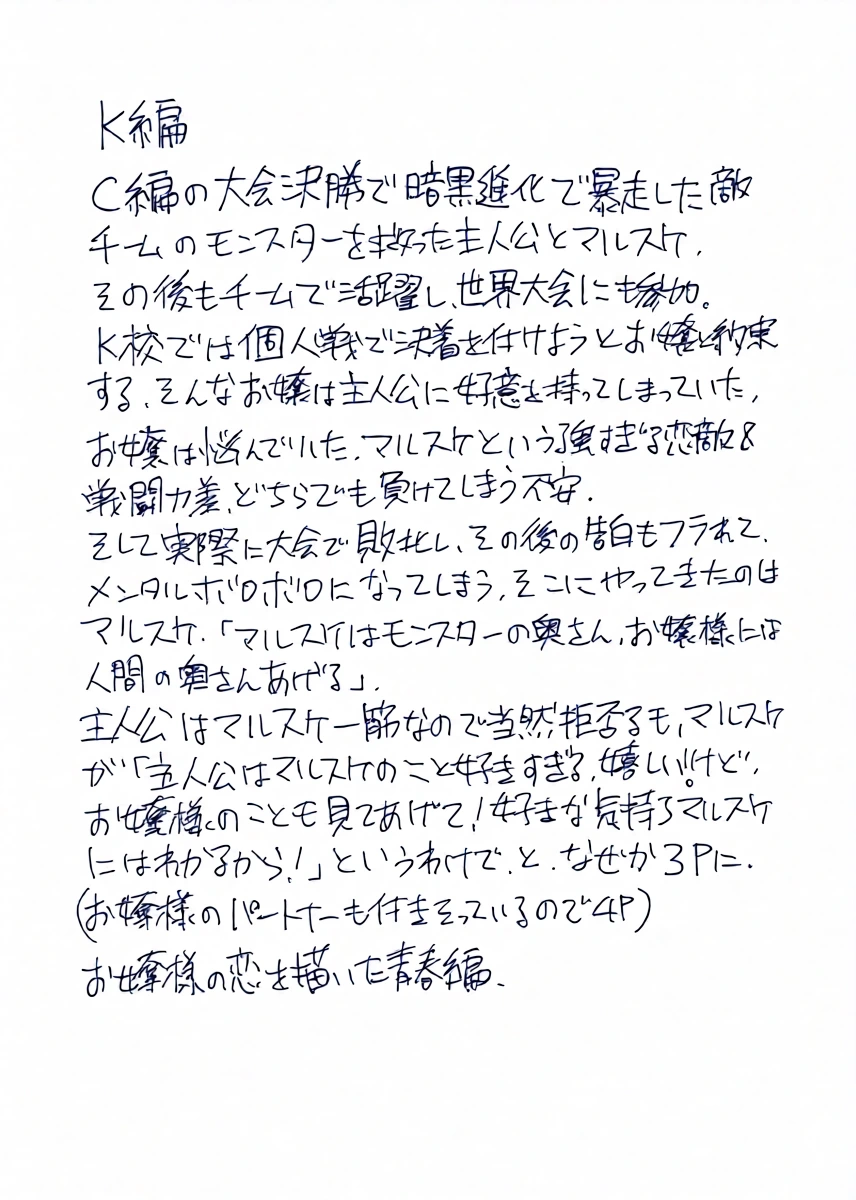 K編
C編の大会決勝で暗黒進化で暴走した敵
チームのモンスターを救った主人公とマルスケ、
その後もチームで活躍し、世界大会にも参加。
K校では個人戦で決着を付けようとお嬢と約束
する、そんなお嬢は主人公に好意を持ってしまっていた、
お嬢は悩んでいた、マルスケという強すぎる恋敵&
戦闘力差、どちらでも負けてしまう不安、
そして実際に大会で敗北し、その後の告白もフラれて、
メンタルボロボロになってしまう、そこにやってきたのは
マルスケ、「マルスケはモンスターの奥さん、お嬢様には
人間の奥さんあげる」、
主人公はマルスケ一筋なので当然拒否るも、マルスケ
が「主人公はマルスケのこと好きすぎる、嬉しい!けど、
お嬢様のことも見てあげて!好きな気持ちマルスケ
にはわかるから!」というわけで、と、なぜか3Pに、
(お嬢様のパートナーも付きそっているので4P)
お嬢様の恋を描いた青春編、